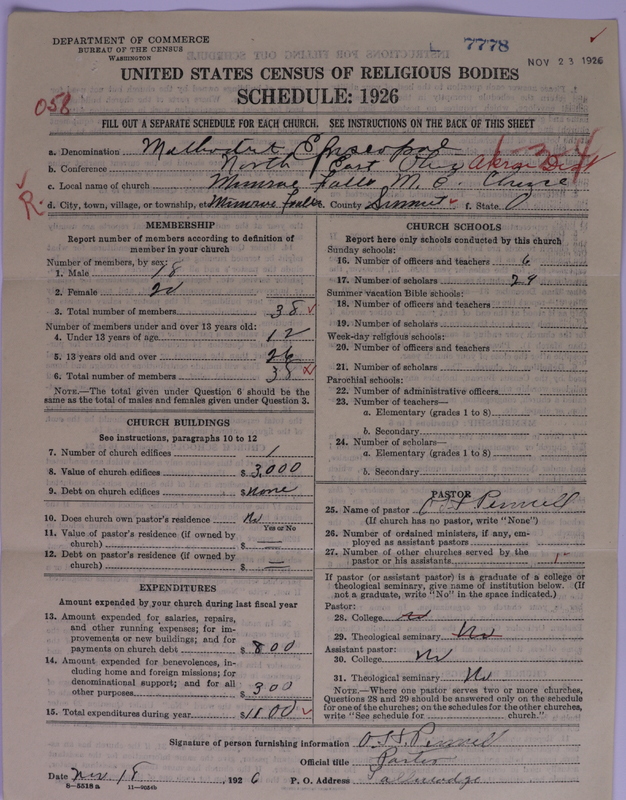 DEPARTMENT OF COMMERCE
BUREAU OF THE CENSUS
WASHINGTON
7778
NOV 23 1926
UNITED STATES CENSUS OF RELIGIOUS BODIES
SCHEDULE: 1926
058
FILL OUT A SEPARATE SCHEDULE FOR EACH CHURCH. SEE INSTRUCTIONS ON THE BACK OF THIS SHEET
a. Denomination Methodist Episcopal
b. Conference North East Ohio Akron Dist
c. Local name of church Munroe Falls M. E. Church
d. City, town, village, or township, etc Munroe Falls e. County Summit f. State O
R
MEMBERSHIP
Report number of members according to definition of
member in your church
Number of members, by sex:
1. Male 18
2. Female 20
3. Total number of members 38
Number of members under and over 13 years old:
4. Under 13 years of age 12
5. 13 years old and over 26
6. Total number of members 38
NOTE.—The total given under Question 6 should be the
same as the total of males and females given under Question 3.
CHURCH BUILDINGS
See instructions, paragraphs 10 to 12
7. Number of church edifices 1
8. Value of church edifices $ 3,000
9. Debt on church edifices $ None
10. Does church own pastor's residence No
Yes or No
11. Value of pastor's residence (if owned by
church) $ —
12. Debt on pastor's residence (if owned by
church) $ —
EXPENDITURES
Amount expended by your church during last fiscal year
13. Amount expended for salaries, repairs,
and other running expenses; for im-
provements or new buildings; and for
payments on church debt $ 800
14. Amount expended for benevolences, in-
cluding home and foreign missions; for
denominational support; and for all
other purposes $ 300
15. Total expenditures during year $ 1100
CHURCH SCHOOLS
Report here only schools conducted by this church
Sunday schools:
16. Number of officers and teachers 6
17. Number of scholars 29
Summer vacation Bible schools:
18. Number of officers and teachers
19. Number of scholars
Week-day religious schools:
20. Number of officers and teachers
21. Number of scholars
Parochial schools:
22. Number of administrative officers
23. Number of teachers—
a. Elementary (grades 1 to 8)
b. Secondary
24. Number of scholars—
a. Elementary (grades 1 to 8)
b. Secondary
PASTOR
25. Name of pastor
(If church has no pastor, write "None")
26. Number of ordained ministers, if any, em-
ployed as assistant pastors
27. Number of other churches served by the
pastor or his assistants 1
If pastor (or assistant pastor) is a graduate of a college or
theological seminary, give name of institution below. (If
not a graduate, write "No" in the space indicated.)
Pastor:
28. College No
29. Theological seminary No
Assistant pastor:
30. College No
31. Theological seminary No
NOTE.—Where one pastor serves two or more churches,
Questions 28 and 29 should be answered only on the schedule
for one of the churches; on the schedules for the other churches,
write "See schedule for church."
Signature of person furnishing information
Official title Pastor
Date Nov 18, 1926 P. O. Address Tallmadge
8-5518a 11-9054b